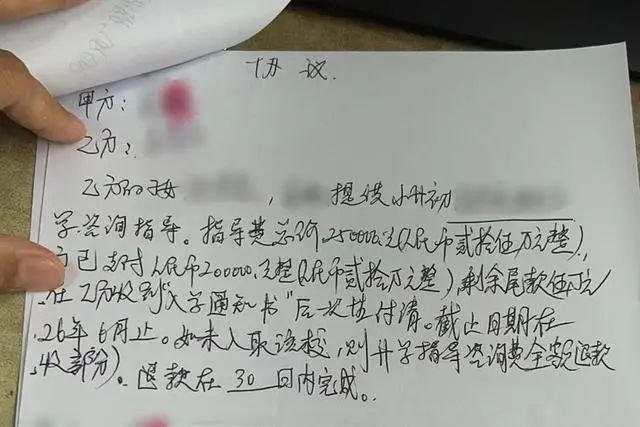 协 议.
甲方:
乙方:
乙方向接 , 提供小升初
学咨询指导。指导费总价250000元(人民币贰拾伍万元整),
方已支付人民币200000元整(人民币贰拾万元整),剩余尾款伍万元
在乙方收到“入学通知书”后一次性付清。截止日期在
26年6月止。如未入取该校,则升学指导咨询费全额退款
收部份)。退款在 30 日内完成。